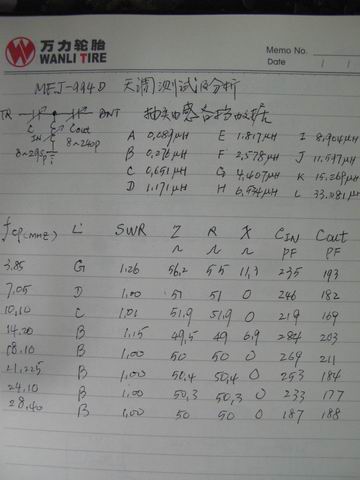 万力轮胎
WANLI TIRE
Memo No.
Date / /
MFJ-994D 天调测试及分析
TR ANT 抽头电感各档数据
C Cout
IN 8~240p
8~295p
A 0,089μH E 1,817μH I 8,904μH
B 0,276μH F 2,578μH J 11,597μH
C 0,691μH G 4,407μH K 15,269μH
D 1,171μH H 6,994μH L 33,081μH
fop(MHZ) L SWR Z R X CIN Cout
Ω Ω Ω PF PF
3.85 G 1.26 56,2 55 11,3 235 193
7,05 D 1,00 51 51 0 246 182
10,10 C 1,01 51,9 51,9 0 219 169
14.20 B 1,15 49,5 49 6,9 284 203
18.10 B 1,00 50 50 0 269 211
21,225 B 1,00 50,4 50,4 0 253 184
24,10 B 1,00 50,3 50,3 0 233 177
28,40 B 1,00 50 50 0 187 188